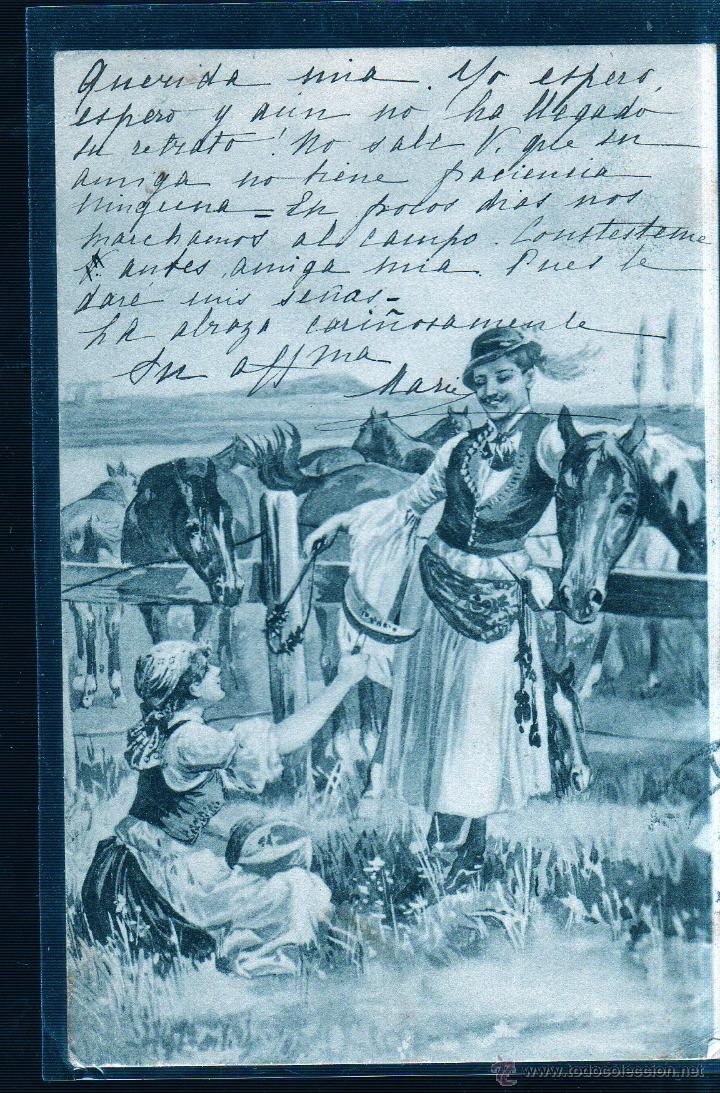 Querida mia. Yo espero,
espero y aún no ha llegado
su retrato! No sabe V. que su
amiga no tiene paciencia
ninguna = En pocos dias nos
marchamos al campo. Constesteme
antes, amiga mia. Pues le
daré mis señas -
La abraza cariñosamente
Su affma
Marie
www.todocoleccion.net